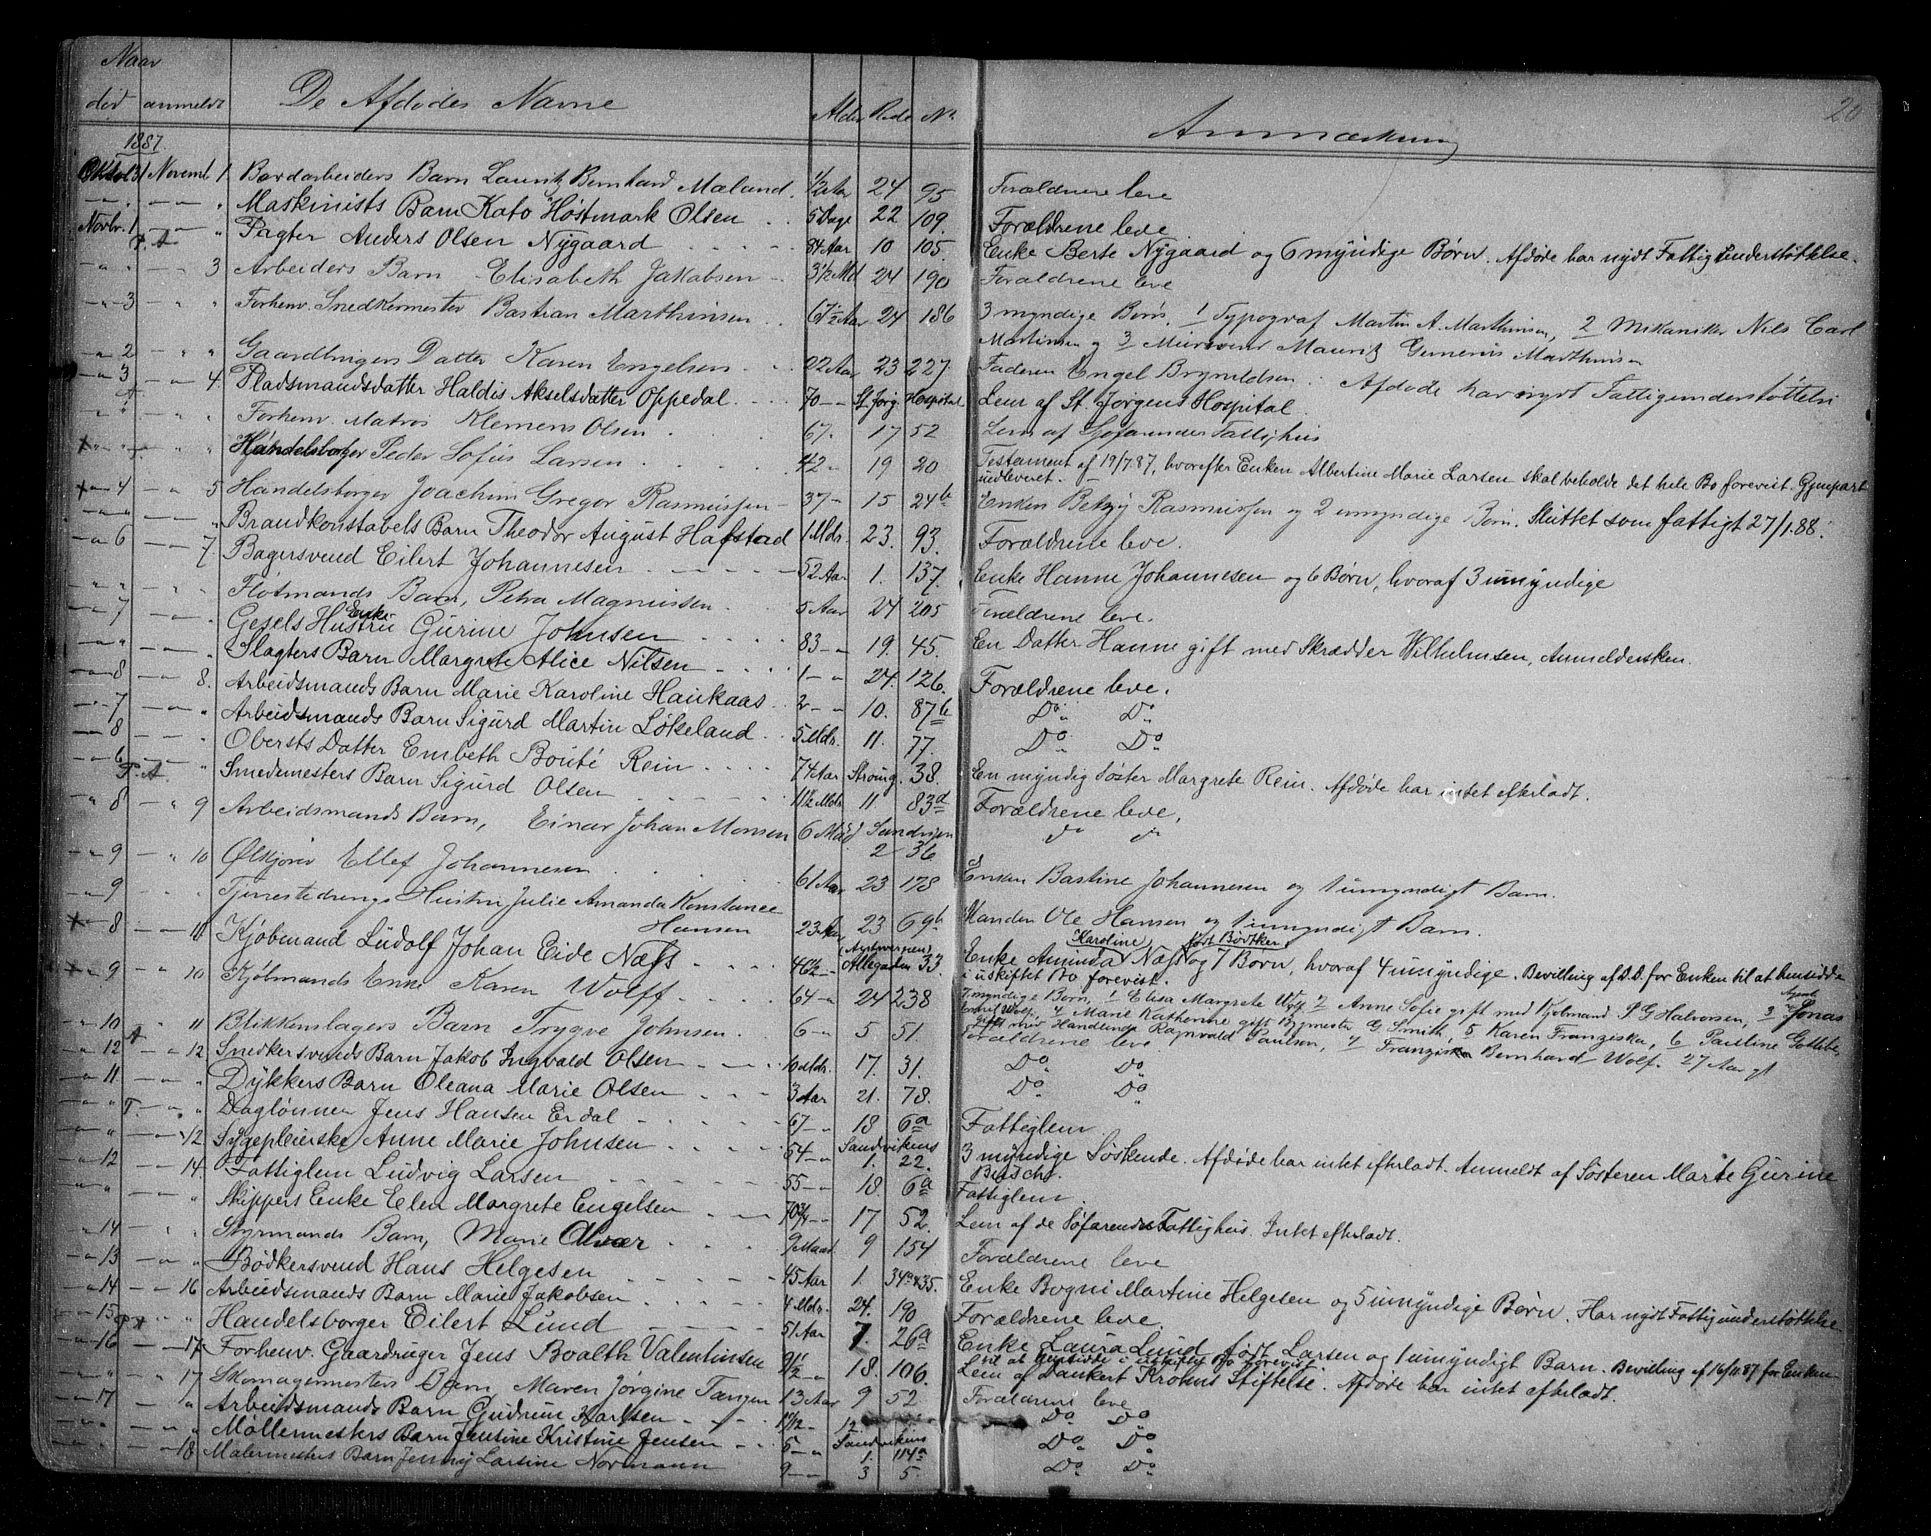 Naar
død anmeldt De Afdødes Navne Alder Rode No. Anmærkning 20
1887
Oktob 31 Novemb 1 Bordarbeiders Barn Lauritz Bernhard Maland ½ Aar 24 95 Forældrene leve
" — " Maskinists Barn Kato Høstmark Olsen 5 Dage 22 109. Forældrene leve
Novbr. 1 — " Pagter Anders Olsen Nygaard 84 Aar 10 105. Enke Berte Nygaard og 6 myndige Børn. Afdøde har nydt Fattigunderstøttelse.
F. A.
" " — " 3 Arbeiders Barn Elisabeth Jakobsen 3½ Md 24 190 Forældrene leve
" 3 " " Forhenv. Snedkermester Bastian Marthinsen 67½ Aar 24 186 3 myndige Børn, 1 Typograf Martin A. Marthinsen, 2 Mikaniker Nils Carl
Martinsen og 3 Mursvend Mauritz Marthinsen
" 2 " " Gaardbrugers Datter Karen Engelsen 22 Aar 23 227. Faderen Engel Brynildsen. Afdøde har nydt Fattigunderstøttelse
" 3 — " 4. Pladsmandsdatter Haldis Akselsdatter Oppedal 70 — " St. Jørg. Hospital Lem af St. Jørgens Hospital.
" " Forhenv. Matros Klemens Olsen 67. 17 52 Lem af Søfarendes Fattighus
x " " " Handelsborger Peder Sofus Larsen 42 " 19 20 Testament af 19/7.87, hvorefter Enken Albertine Marie Larsen skal beholde det hele Bo forevist. Gjenpart
udleveret.
x " 4 — " 5 Handelsborger Joachim Gregor Rasmussen 37 — 15 24b Enken Betzy Rasmussen og 2 umyndige Børn. Sluttet som fattigt 27/1.88.
" " — " Brandkonstabels Barn Theodor August Hafstad 1 Mdr. 23. 93. Forældrene leve.
" 6 — " 7 Bagersvend Eilert Johannesen 52 Aar 1. 137. Enke Hanne Johannesen og 6 Børn, hvoraf 3 umyndige
" " — " Fløtmands Barn, Petra Magnussen 5 Aar 24 205 Forældrene leve.
" 7 — " Gesels Hustru Enke Gurine Johnsen 83 — " 19. 45. En Datter Hanne gift med Skrædder Wilhelmsen, Anmeldersken.
" " — " Slagters Barn Margrete Alice Nilsen 1 — " 24. 126. Forældrene leve.
" 8 — " 8. Arbeidsmands Barn Marie Karoline Haukaas 2 — " 10. 87b Do Do
" 7 — " Arbeidsmands Barn Sigurd Martin Løkeland 5 Mdr. 11. 77. Do Do
— 8 " Obersts Datter Embeth Bouté Rein 74 Aar Strang. 38. En myndig Søster Margrete Rein. Afdøde har intet efterladt.
" 6 F. A. " Smedemesters Barn Sigurd Olsen 11½ Mdr. 11 83d Forældrene leve.
" 8 — " 9 Arbeidsmands Barn, Einar Johan Monsen 6 Maad Sandvigen 2 36 do do
" 9 — " 10 Ølkjører Ellef Johannesen 61 Aar 23 178 Enken Bastine Johannesen og 1 umyndigt Barn.
" 9 " " Tjenestedrengs Hustru Julie Amanda Konstance
Hansen 23 Aar 23 69b Manden Ole Hansen og 1 umyndigt Barn.
x " 8 11 Kjøbmand Ludolf Johan Eide Næss 46½ — " Allegaden 33. Enke Aminda Karoline Næss født Bødtker og 7 Børn, hvoraf 4 umyndige. Bevilling af D.D. for Enken til at hensidde
i uskiftet Bo forevist.
x " 9 — " 10 Kjøbmands Enke Karen Wolff 64 " 24 238 7 myndige Børn, 1 Elisa Margrete Wolf 2 Anne Sofie gift med Kjøbmand P G Halvorsen, 3 Agent Jonas
Wolf, 4 Marie Katherine gift Bymester G. Smith, 5 Karen Franziska, 6 Pauline
gift med Handlende Ragnvald Paulsen, 7 Franziska Bernhard Wolf. 27 Aar gl
" 10 — " 11 Blikkenslagers Barn Trygve Johnsen 6 — " 5 51. Forældrene leve
" 12 A — " 12 Snedkersvends Barn Jakob Ingvald Olsen 10 Mdr. 17. 31. Do Do
" 11 — " Dykkers Barn Oleana Marie Olsen 3 Aar 21. 78. Do Do
" " F. " Daglønner Jens Hansen Erdal 67 — " 18 6a Fattiglem.
" " — 12 Sygepleierske Anne Marie Johnsen 54 — " Sandvikens 1. 22. 3 myndige Søskende. Afdøde har intet efterladt. Anmeldt af Søsteren Marte Gurine
" 12 — 14. Fattiglem Ludvig Larsen 55 — " 18 6a Fattiglem.
" " — " Skippers Enke Elen Margrete Engelsen 70¾ — " 17 52. Lem af de Søfarendes Fattighus. Intet efterladt.
" 14 " Styrmands Barn, Marie Alvær 9 Maad 9 154 Forældrene leve
" 13 — " Bødkersvend Hans Helgesen 45 Aar 1. 34a&35. Enke Bogni Martine Helgesen og 5 umyndige Børn. Har nydt Fattigunderstøttelse
" 14 — " 16 Arbeidsmands Barn Marie Jakobsen 4 Mdr. 24. 190 Forældrene leve.
" 15 " " Handelsborger Eilert Lund 51 Aar 7. 26a Enke Laura Lund født Larsen og 1 umyndigt Barn. Bevilling af 16/11.87 for Enken
til at hensidde i uskiftet Bo forevist.
" 16 — 17 Forhenv. Gaardruger Jens Boalth Valentinsen 91½ — " 18. 106. Lem af Dankert Krohns Stiftelse. Afdøde har intet efterladt.
" " " 17 Skomagermesters Barn, Maren Jørgine Tangen 13 Aar 9 52 Forældrene leve
" 17 — " Arbeidsmands Barn Gudrun Karlsen 1 5/12 — 12 Do Do
" " — " Møllermesters Barn Jensine Kristine Jensen 5 — " Sandvikens 1. 114a Do Do
" " — 18 Malermesters Barn Jenny Larsine Normann 9 — " 3 5 Do Do